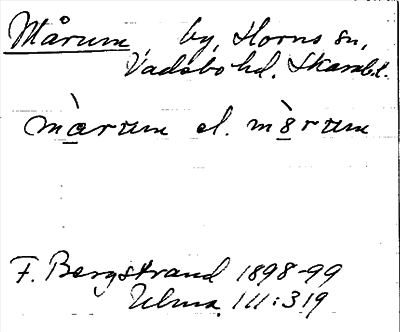 Mårum, by, Horns sn,
Vadsbo hd, Skarab.l.
màrum el. m̀8rum
F. Bergstrand 1898-99
Ulma. 111:319